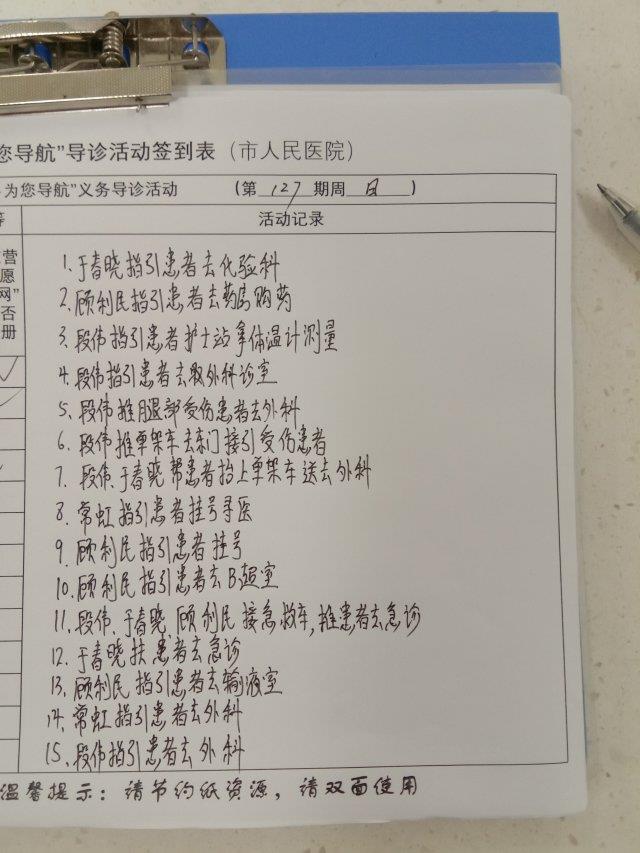 您导航”导诊活动签到表（市人民医院）
为您导航”义务导诊活动 （第 127 期周 日 ）
等 活动记录
营
愿
网”
否
册
1. 于春晓指引患者去化验科
2. 顾利民指引患者去药房购药
3. 段伟指引患者护士站拿体温计测量
4. 段伟指引患者去取外科诊室
5. 段伟推腿部受伤患者去外科
6. 段伟推单架车去东门接引受伤患者
7. 段伟、于春晓帮患者抬上单架车送去外科
8. 常虹指引患者挂号寻医
9. 顾利民指引患者挂号
10. 顾利民指引患者去B超室
11. 段伟、于春晓、顾利民接急救车,推患者去急诊
12. 于春晓扶患者去急诊
13. 顾利民指引患者去输液室
14. 常虹指引患者去外科
15. 段伟指引患者去外科
温馨提示：请节约纸资源，请双面使用